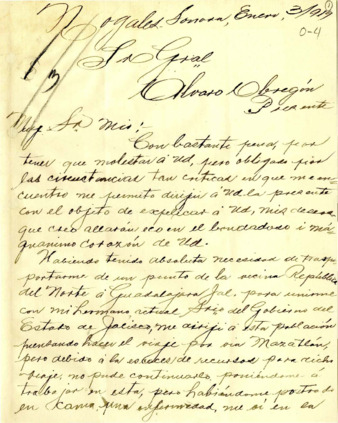 Nogales, Sonora, Enero, 3/919
0-4
Sr Gral
Alvaro Obregón
Presente
Muy Sr. Mio:
Con bastante pena, por
tener que molestar á Ud, pero obligado por
las circustancias tan criticas en que me en-
cuentro me permito dirijir á Ud la presente
con el objeto de expelicar á Ud, mis deseos
que creo allarán eco en el bondadoso i má-
gnanimo corazón de Ud.
Habiendo tenido absoluta necesidad de trasp-
portarme de un punto de la vecina República
del Norte á Guadalajara Jal. para unirme
con mi hermano actual Srio del Gobierno del
Estado de Jalisco, me dirijí á esta población
pensando hacer el viaje por via Mazatlán,
pero debido á la escases de recursos para dicho
viaje, no pude continuarlo poniéndome á
trabajar en esta, pero habiéndome postrado
en kama, una enfermedad, me vi en la